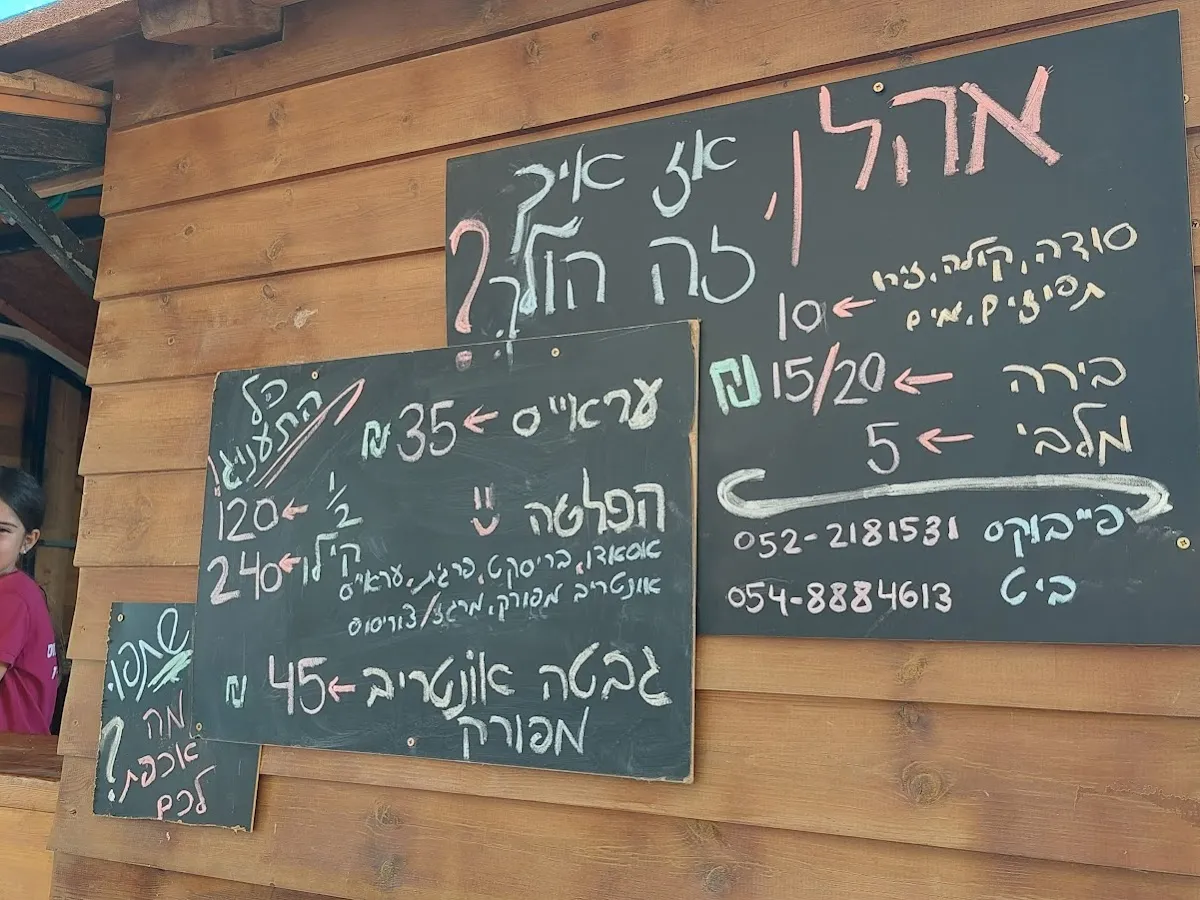 אהלן, אז איך
זה הולך?
סודה, קולה, זירו
תפוזים, מים
10
בירה ← 15/20 ₪
מלבי ← 5
פייבוקס 052-2181531
ביט 054-8884613
כל
התענוג!
עראייס ← 35 ₪
הפלטה
1/2 ← 120
קילו ← 240
אסאדו, בריסקט, פרגית, עראייס
אונטריב מפורק, מרגז/צוריסוס
גבטה אונטריב ← 45 ₪
מפורק
שתפו.
מה
אכפת
לכם?